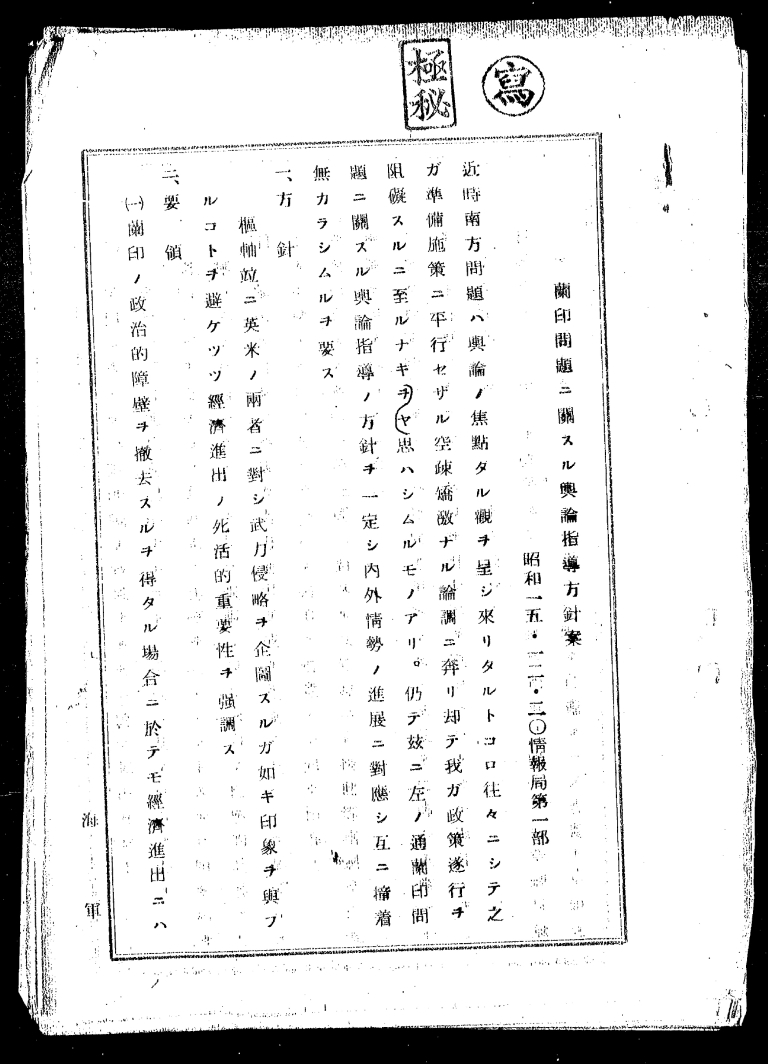 寫
極秘
蘭印問題ニ關スル輿論指導方針案
昭和一五・一二・二〇情報局第一部
近時南方問題ハ輿論ノ焦點タル觀ヲ呈シ來リタルトコロ往々ニシテ之
ガ準備施策ニ平行セザル空疎矯激ナル論調ニ奔リ却テ我ガ政策遂行ヲ
阻礙スルニ至ルナキヲヤ思ハシムルモノアリ。仍テ玆ニ左ノ通蘭印問
題ニ關スル輿論指導ノ方針ヲ一定シ内外情勢ノ進展ニ對應シ互ニ撞着
無カラシムルヲ要ス
一、方針
樞軸竝ニ英米ノ兩者ニ對シ武力侵略ヲ企圖スルガ如キ印象ヲ與フ
ルコトヲ避ケツツ經濟進出ノ死活的重要性ヲ強調ス
二、要領
㈠蘭印ノ政治的障壁ヲ撤去スルヲ得タル場合ニ於テモ經濟進出ニハ
海軍